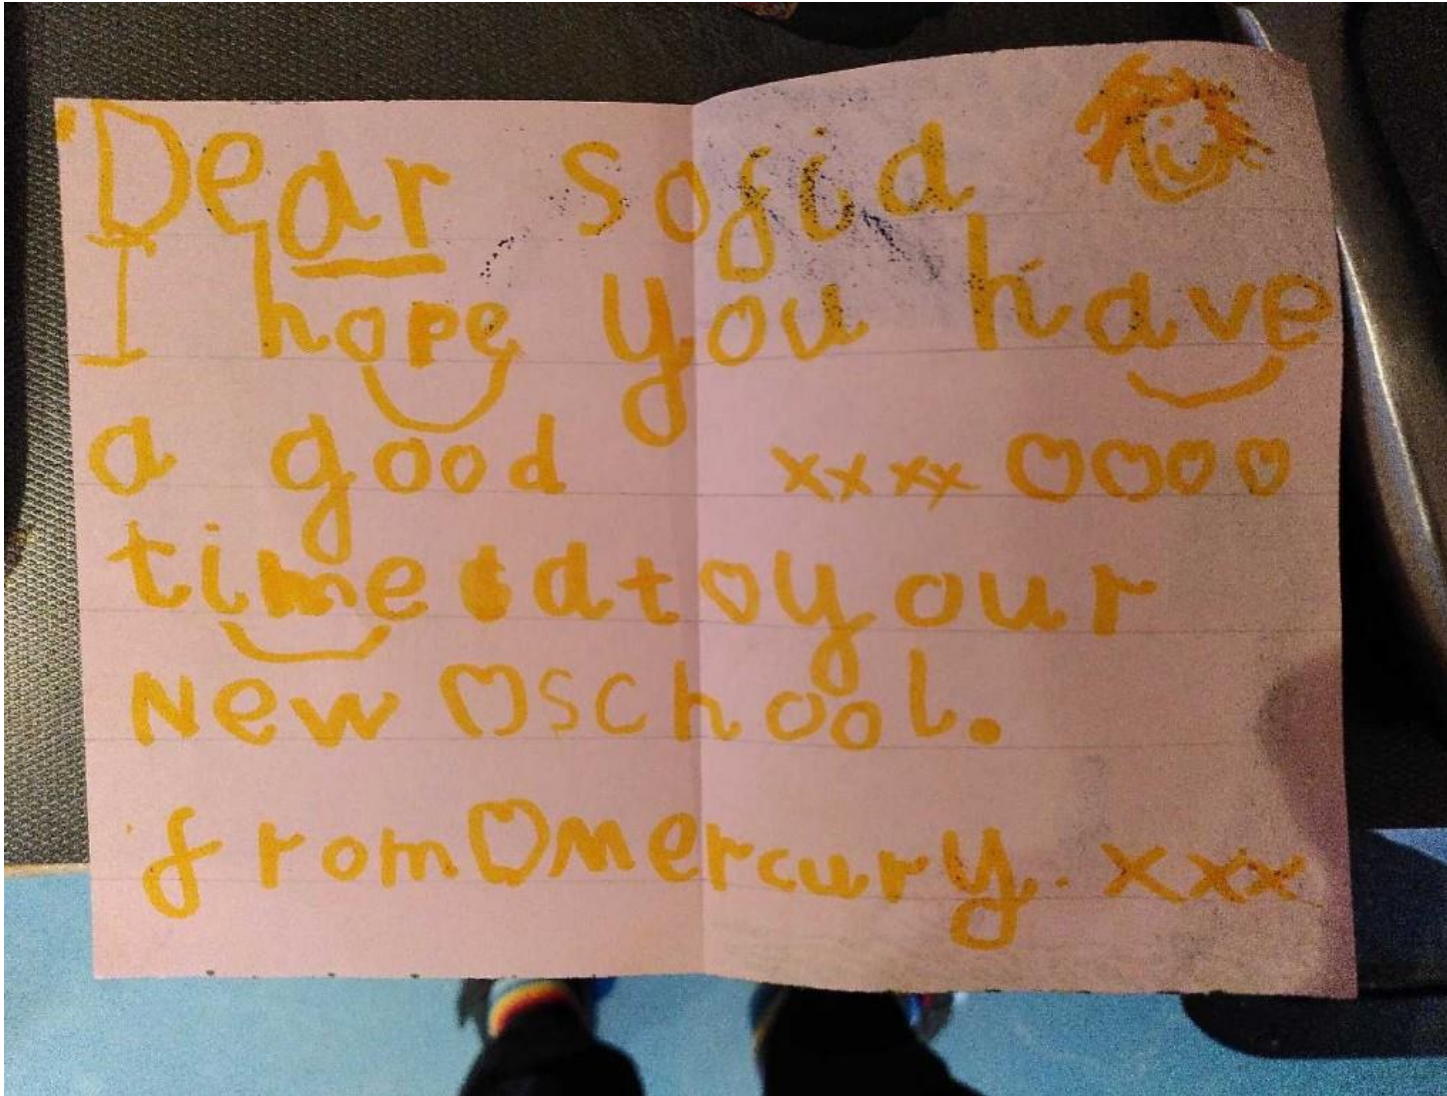 Dear sofia
I hope you have
a good xxxx
time at your
New school.
from mercury. xxx